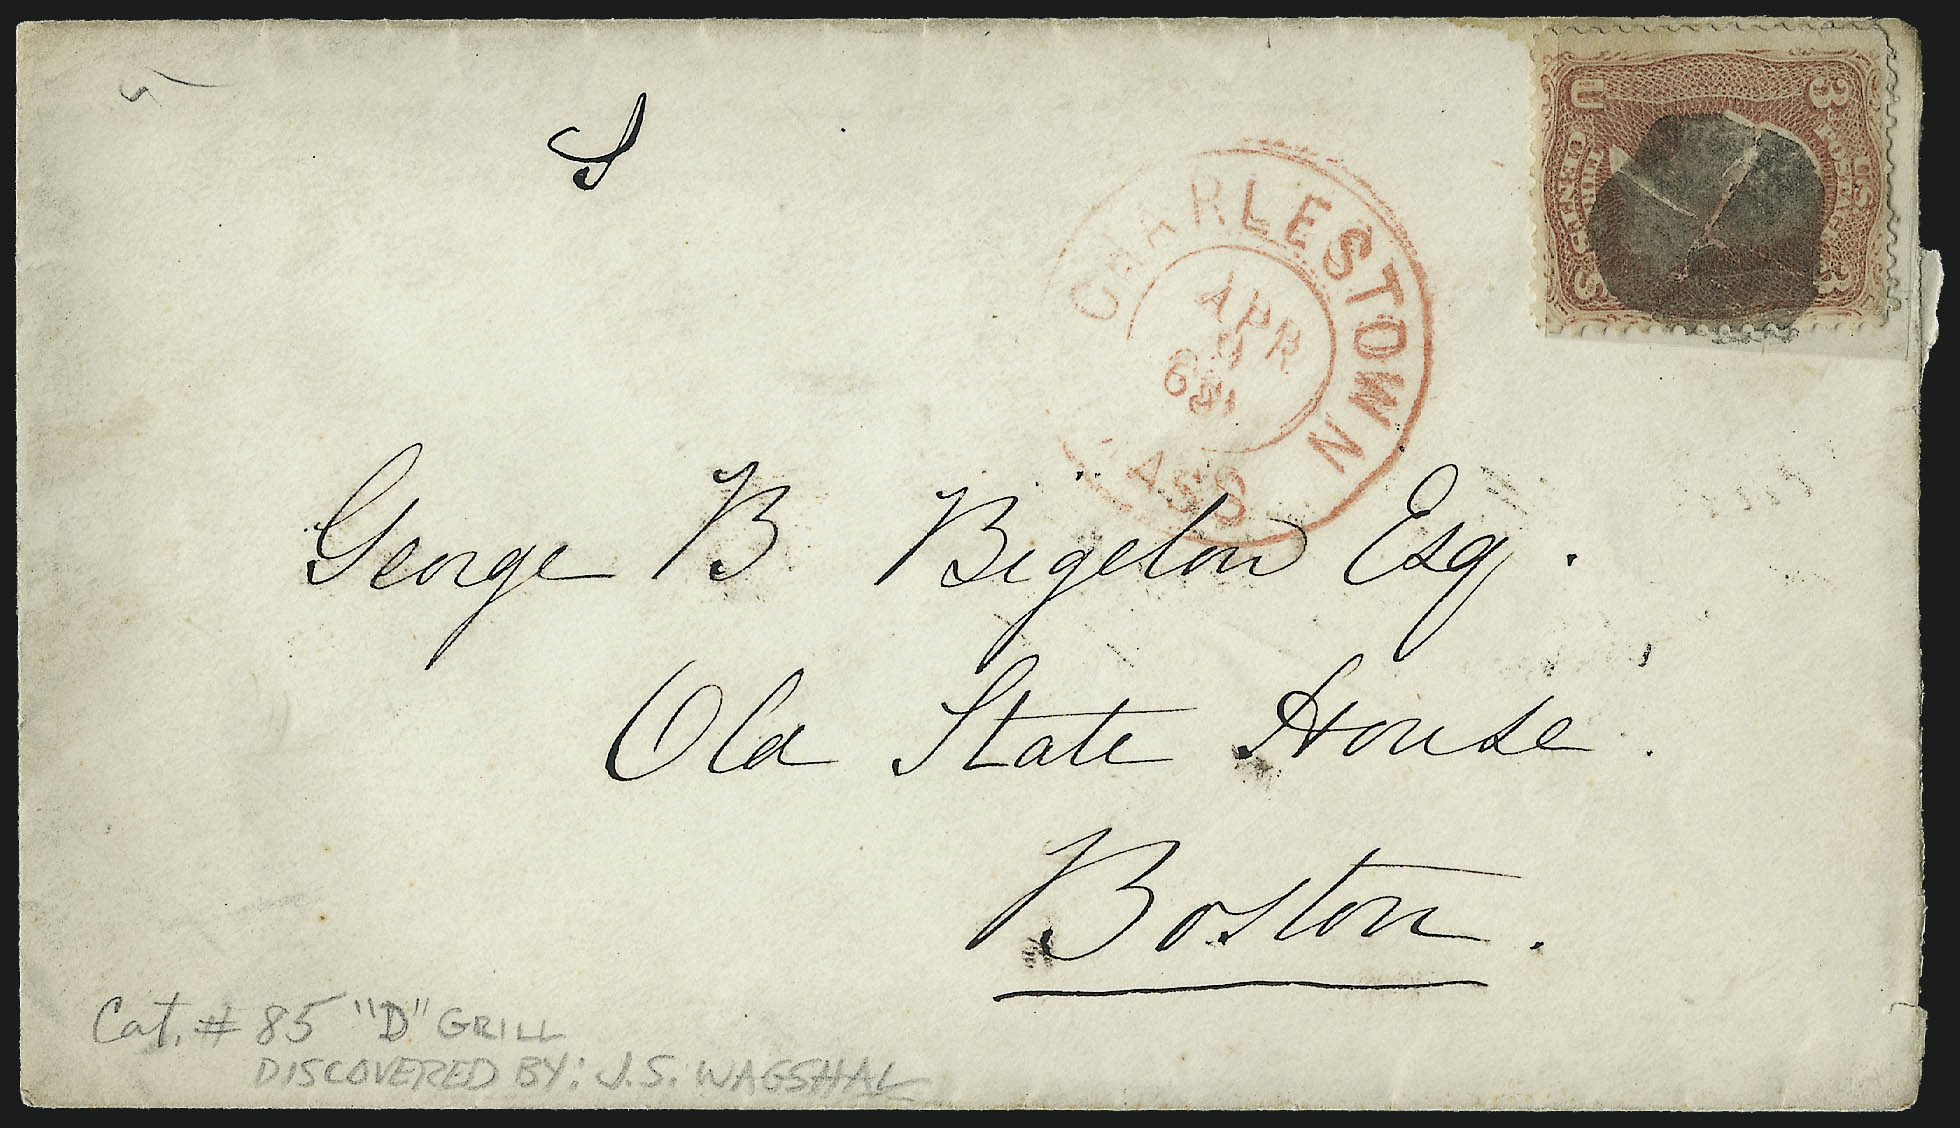 U S
3 3
U.S. POSTAGE
THREE CENTS
CHARLESTOWN
APR
MASS
George B Bigelow Esq.
Old State House.
Boston.
Cat. # 85 "D" GRILL
DISCOVERED BY: J.S. WAGSHAL